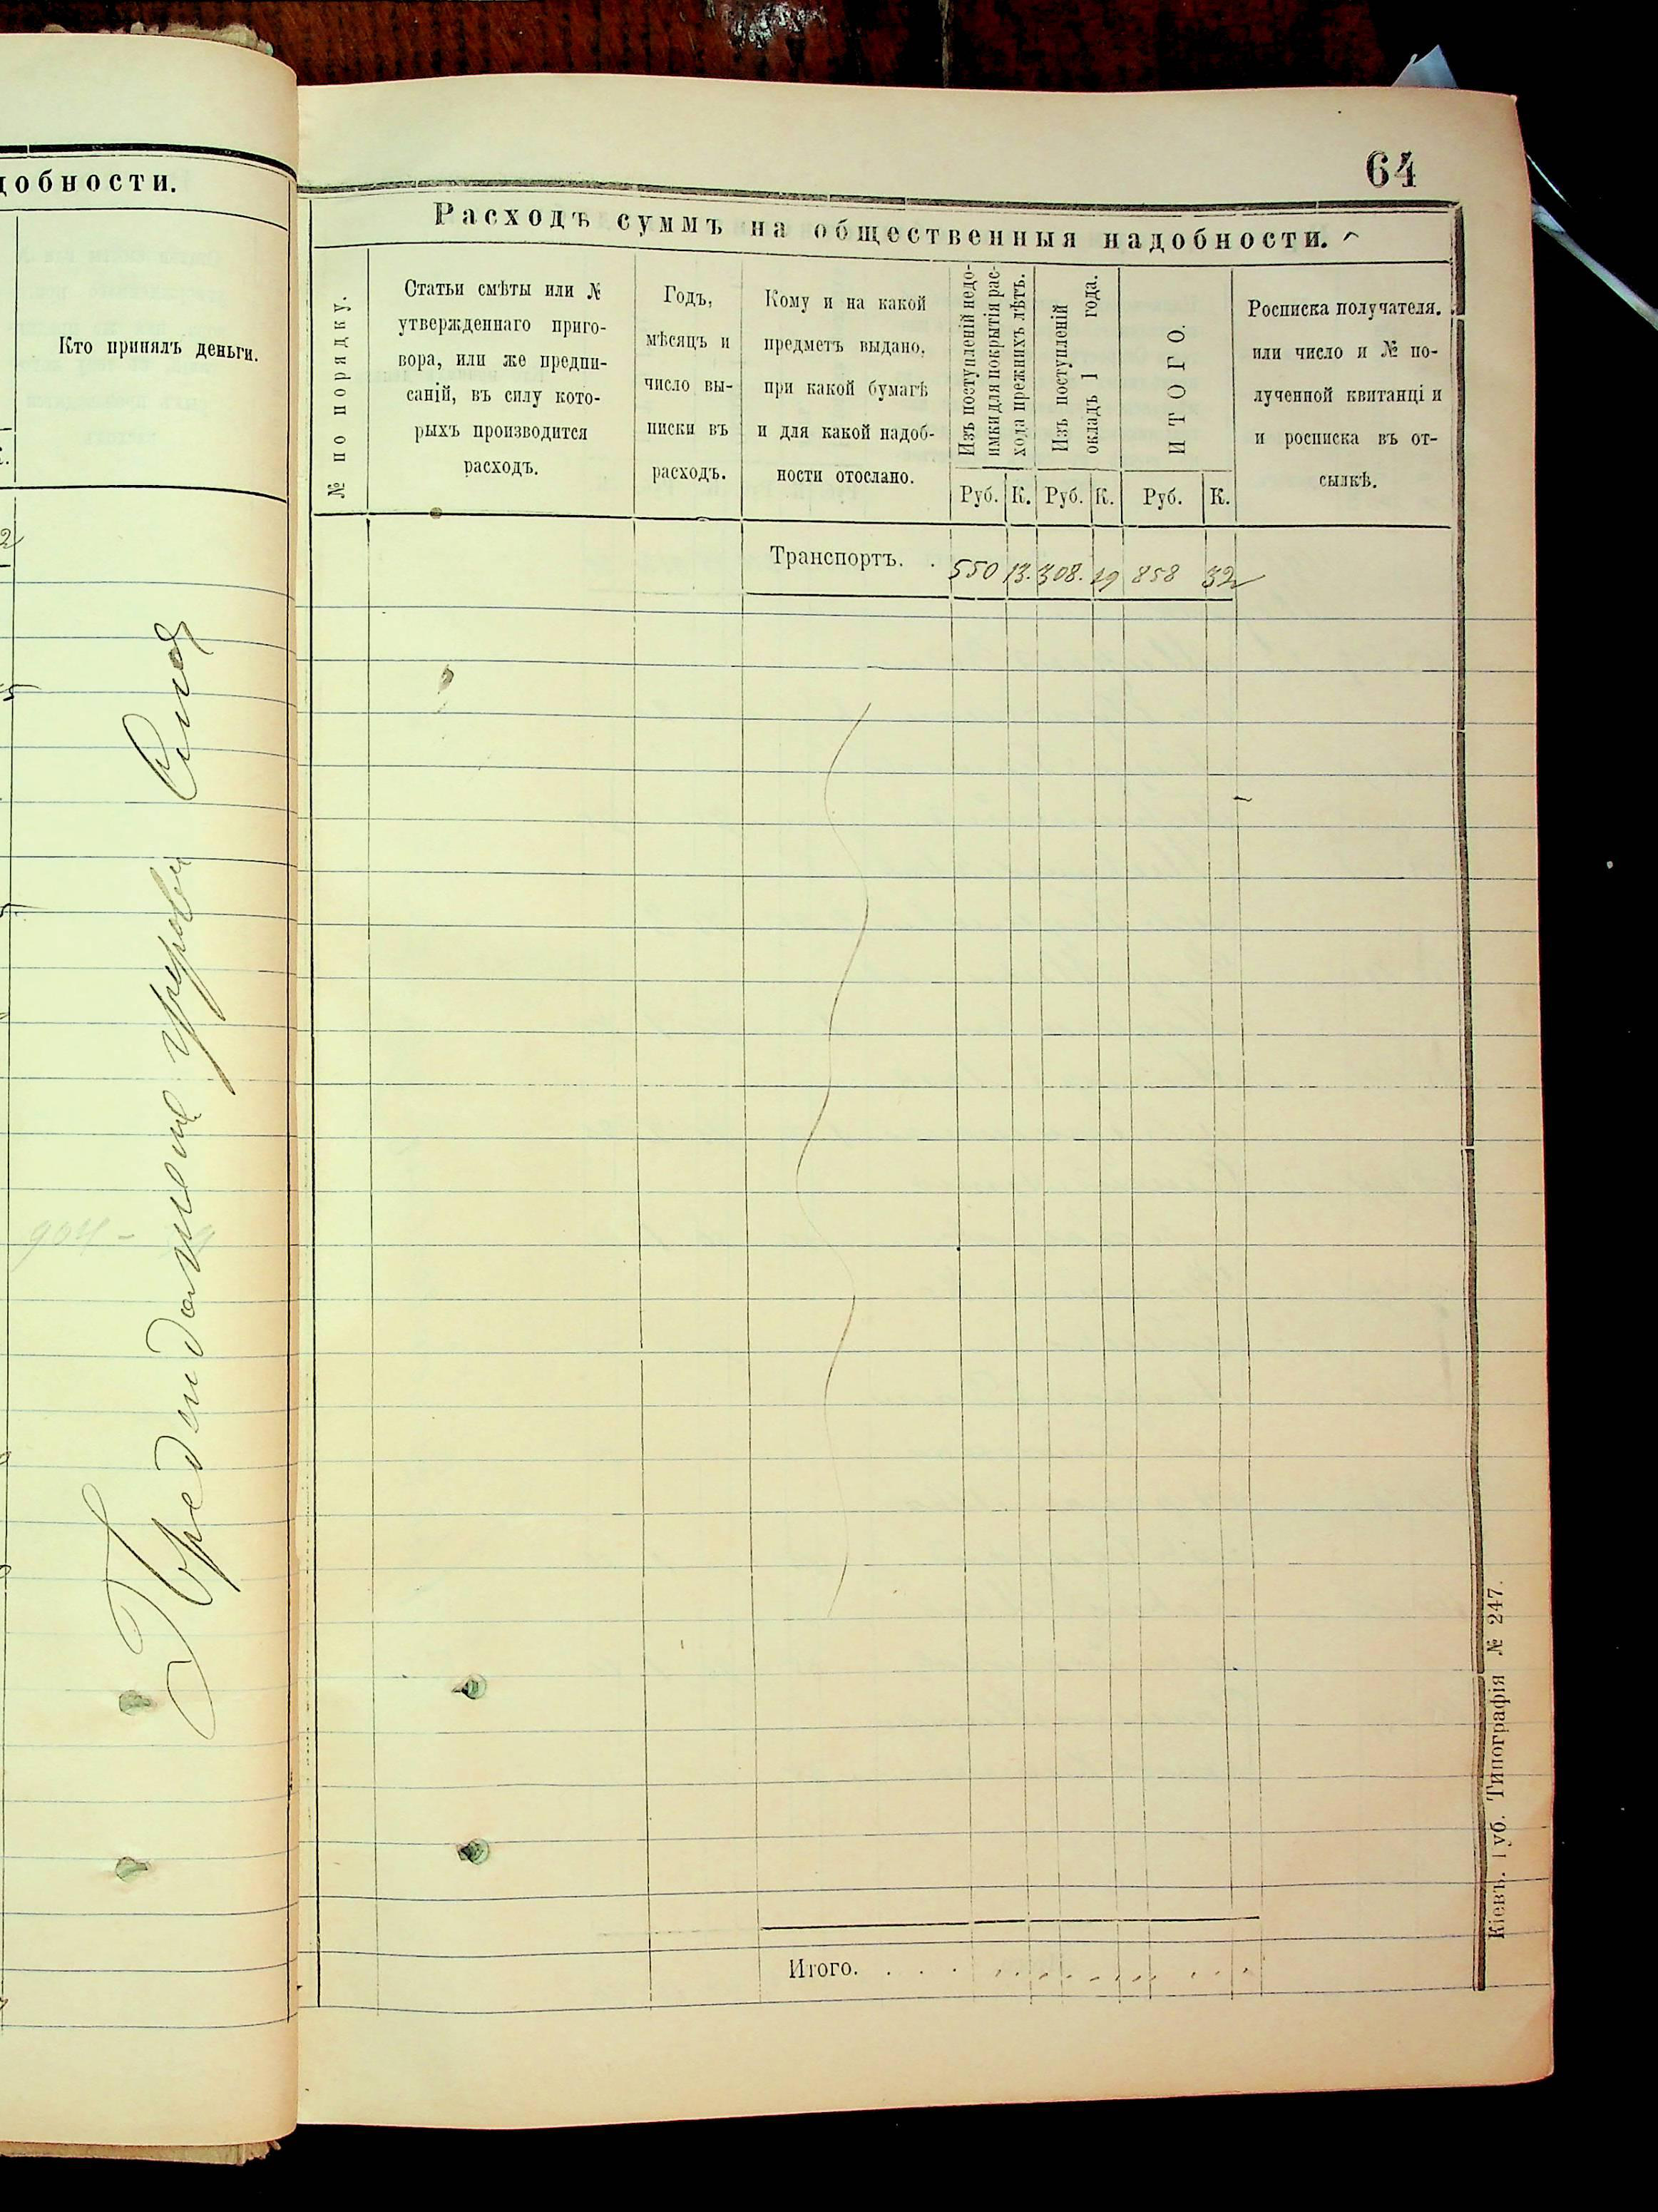 добности.
Кто принялъ деньги.
64
Расходъ суммъ на общественныя надобности.
№ по порядку.
Статьи смѣты или №
утвержденнаго приго-
вора, или же предпи-
саній, въ силу кото-
рыхъ производится
расходъ.
Годъ,
мѣсяцъ и
число вы-
писки въ
расходъ.
Кому и на какой
предметъ выдано,
при какой бумагѣ
и для какой надоб-
ности отослано.
Изъ поступленій недо-
имки для покрытія рас-
хода прежнихъ лѣтъ.
Изъ поступленій
окладъ 1 года.
ИТОГО.
Росписка получателя.
или число и № по-
лученной квитанціи
и росписка въ от-
сылкѣ.
Руб. К. Руб. К. Руб. К.
Транспортъ. . 550 13. 308. 19 858 32
Итого.
Кіевъ. Губ. Типографія № 247.